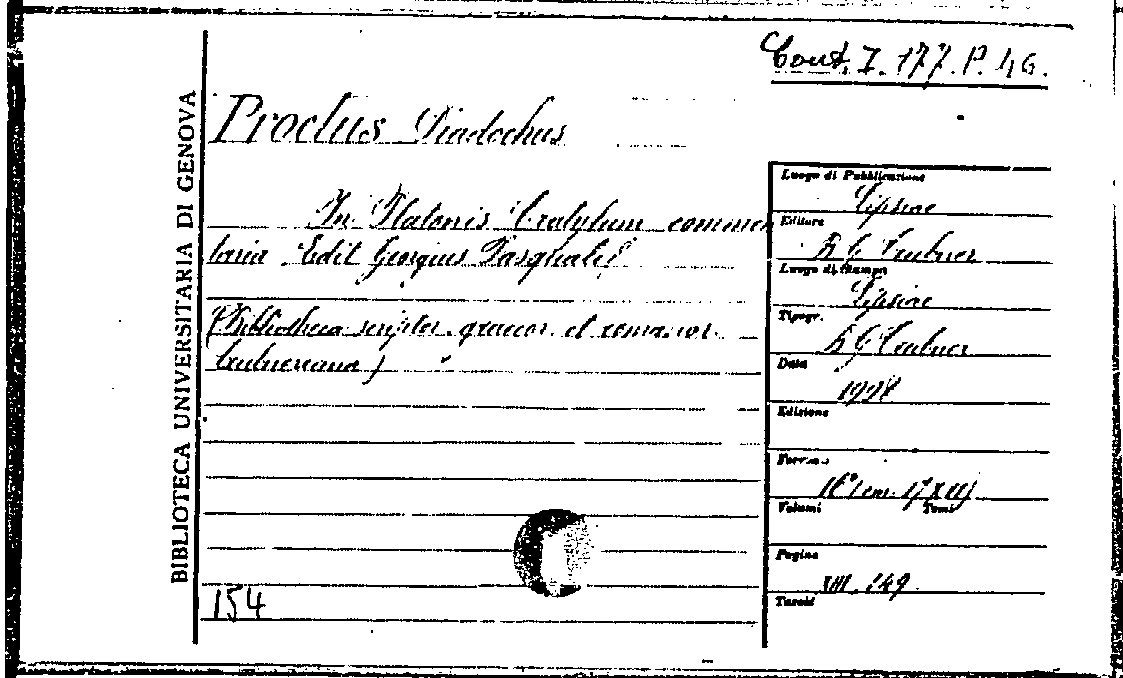 Cont. I. 177. P. 46.
BIBLIOTECA UNIVERSITARIA DI GENOVA
Proclus Diadochus
In Platonis Cratylum commen
taria Edit Georgius Pasquali
(Bibliotheca scriptor. graecor. et romanor.
teubneriana)
154
Luogo di Pubblicazione
Lipsiae
Editore
B G Teubner
Luogo di Stampa
Lipsiae
Tipogr.
B G Teubner
Data
Edizione
Formato
16°
Volumi Tomi
Pagine
XIII. 149
Tavole